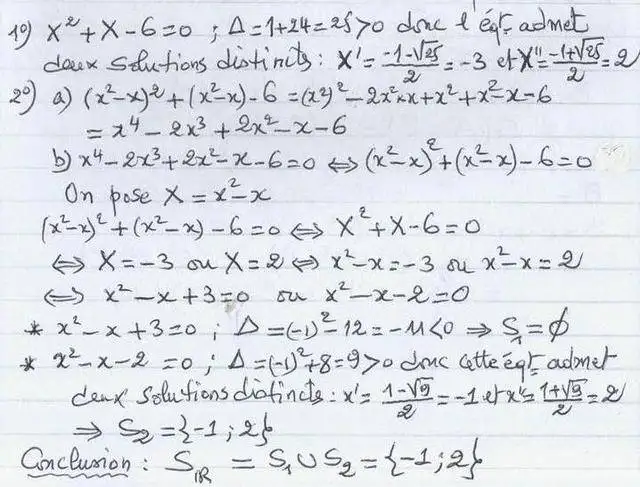 1°) X² + X - 6 = 0 ; Δ = 1 + 24 = 25 > 0 donc l'éqt° admet
deux solutions distinctes : X' = (-1-√25)/2 = -3 et X'' = (-1+√25)/2 = 2
2°) a) (x²-x)² + (x²-x) - 6 = (x²)² - 2x²×x + x² + x² - x - 6
= x⁴ - 2x³ + 2x² - x - 6
b) x⁴ - 2x³ + 2x² - x - 6 = 0 ⇔ (x²-x)² + (x²-x) - 6 = 0
On pose X = x² - x
(x²-x)² + (x²-x) - 6 = 0 ⇔ X² + X - 6 = 0
⇔ X = -3 ou X = 2 ⇔ x² - x = -3 ou x² - x = 2
⇔ x² - x + 3 = 0 ou x² - x - 2 = 0
* x² - x + 3 = 0 ; Δ = (-1)² - 12 = -11 < 0 ⇒ S₁ = ∅
* x² - x - 2 = 0 ; Δ = (-1)² + 8 = 9 > 0 donc cette éqt° admet
deux solutions distinctes : x' = (1-√9)/2 = -1 et x'' = (1+√9)/2 = 2
⇒ S₂ = {-1 ; 2}
Conclusion : S_ℝ = S₁ ∪ S₂ = {-1 ; 2}